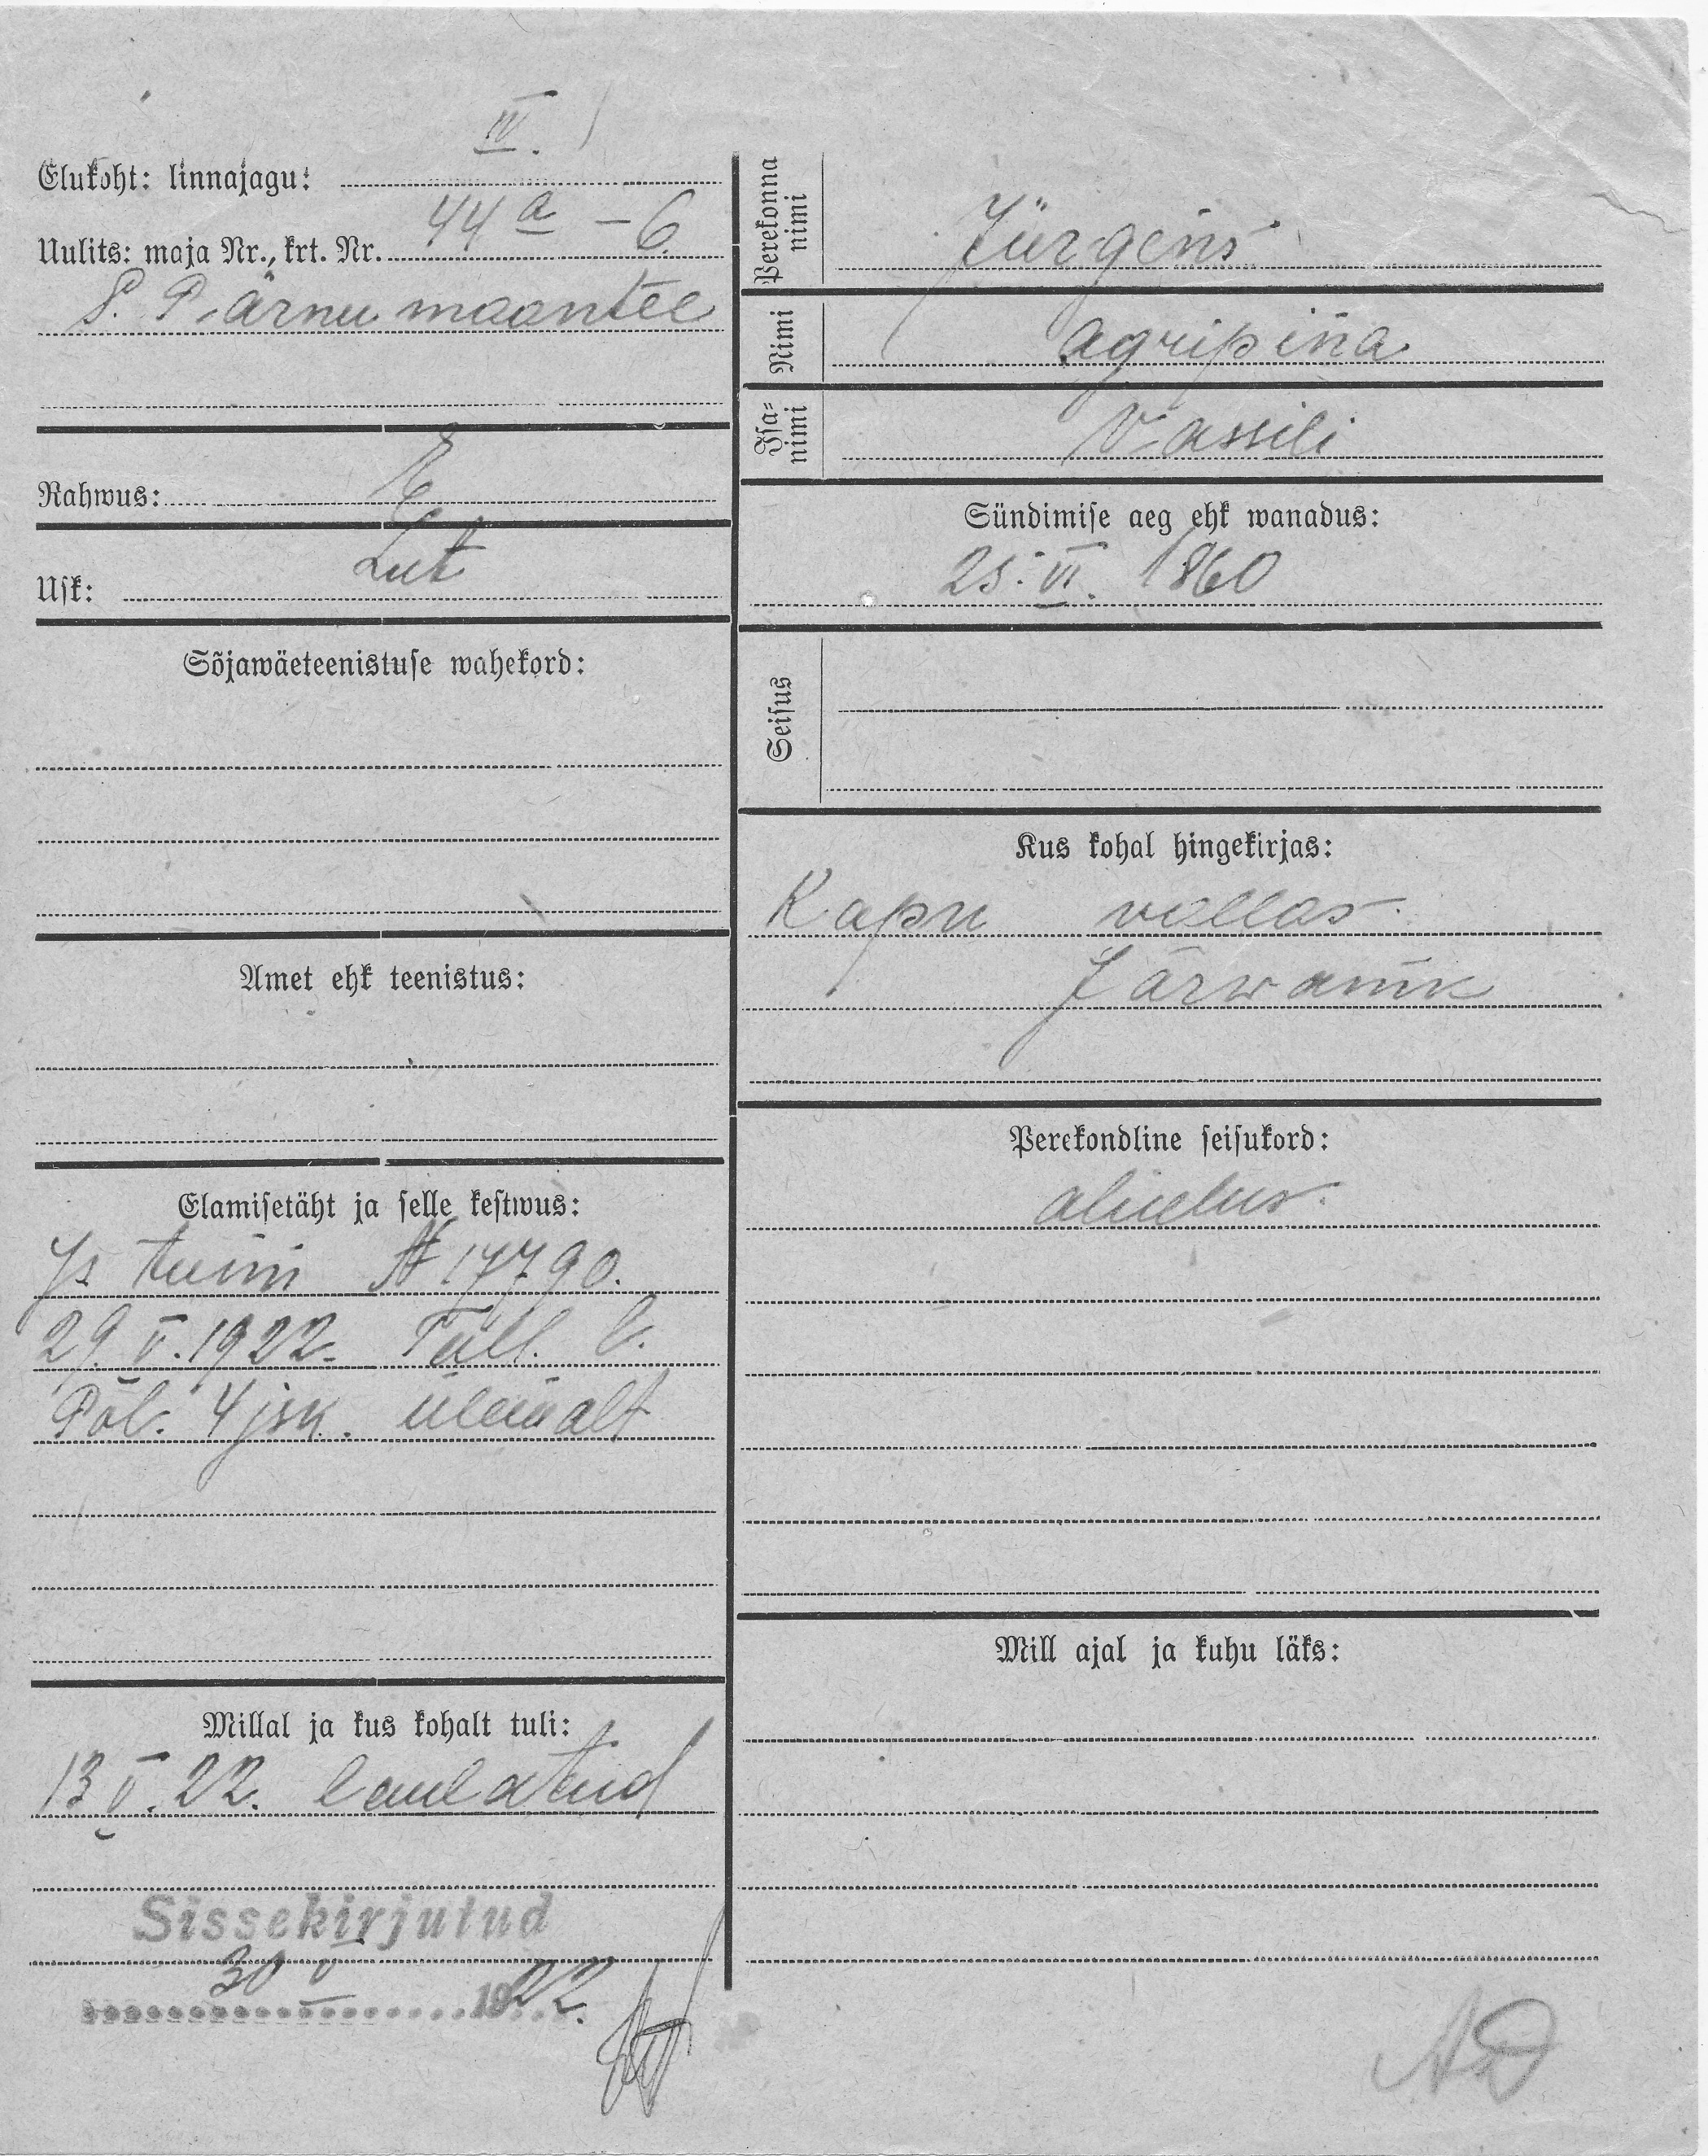 IV.
Elukoht: linnajagu:
44a – 6.
Uulits: maja Nr., krt. Nr.
S. Pärnu maantee
Rahwus: E
Usk: Lut
Sõjawäeteenistuse wahekord:
Amet ehk teenistus:
Elamisetäht ja selle kestwus:
Is tunn № 17790.
29. V. 1922. Tall. l.
Pol. 4 jsk. ülemalt
Millal ja kus kohalt tuli:
13 V. 22. laulatud
Sissekirjutud
30 V 1922.
Perekonna
nimi
Jürgens
Nimi
Agripina
Isa-
nimi
Vassili
Sündimise aeg ehk wanadus:
25. VI. 1860
Seisus
Kus kohal hingekirjas:
Kapu vallas
Järwamk
Perekondline seisukord:
abielus.
Mill ajal ja kuhu läks: